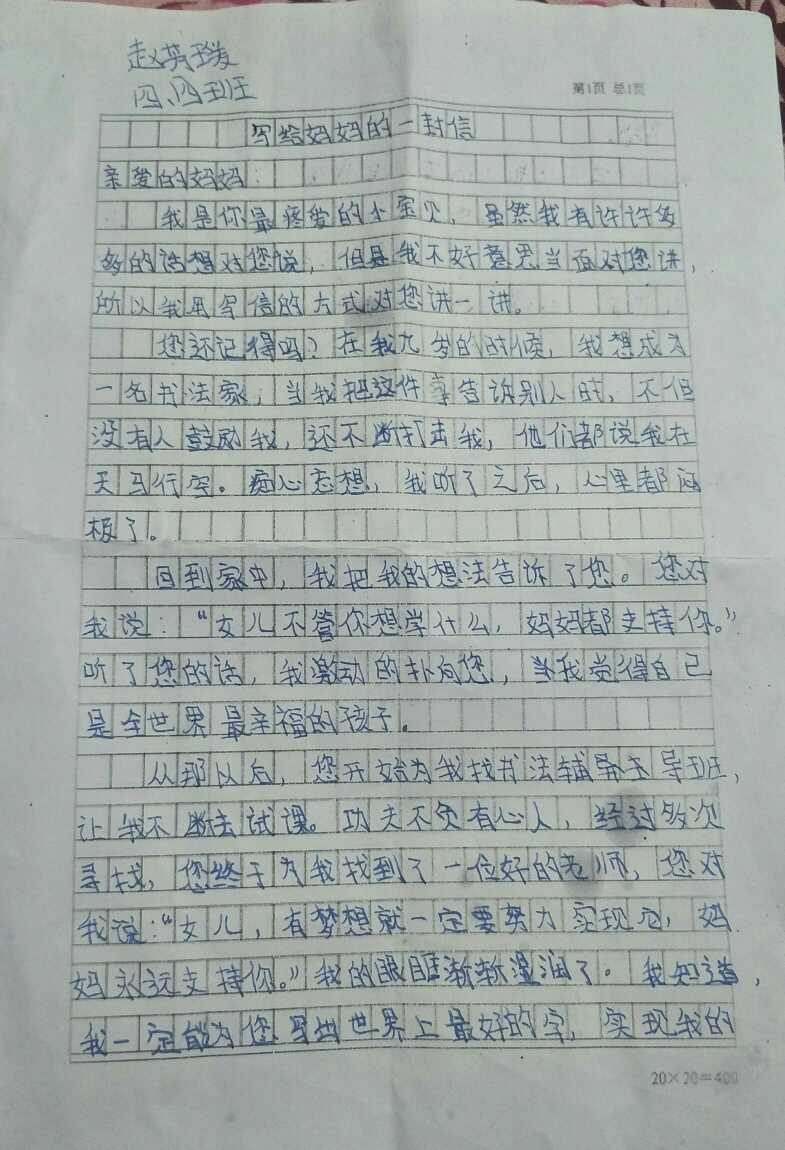 赵英瑷
四、四班
第1页 总1页
写给妈妈的一封信
亲爱的妈妈:
我是你最疼爱的小宝贝，虽然我有许许多
多的话想对您说，但是我不好意思当面对您讲，
所以我用写信的方式对您讲一讲。
您还记得吗？在我九岁的时候，我想成为
一名书法家，当我把这件事告诉别人时，不但
没有人鼓励我，还不断打击我，他们都说我在
天马行空。痴心忘想，我听了之后，心里都闷
极了。
回到家中，我把我的想法告诉了您。您对
我说：“女儿不管你想学什么，妈妈都支持你。”
听了您的话，我激动的扑向您，当我觉得自己
是全世界最幸福的孩子。
从那以后，您开始为我找书法辅导班，
让我不断去试课。功夫不负有心人，经过多次
寻找，您终于为我找到了一位好的老师，您对
我说：“女儿，有梦想就一定要努力实现它，妈
妈永远支持你。”我的眼眶渐渐湿润了。我知道，
我一定能为您写出世界上最好的字，实现我的
20×20=400